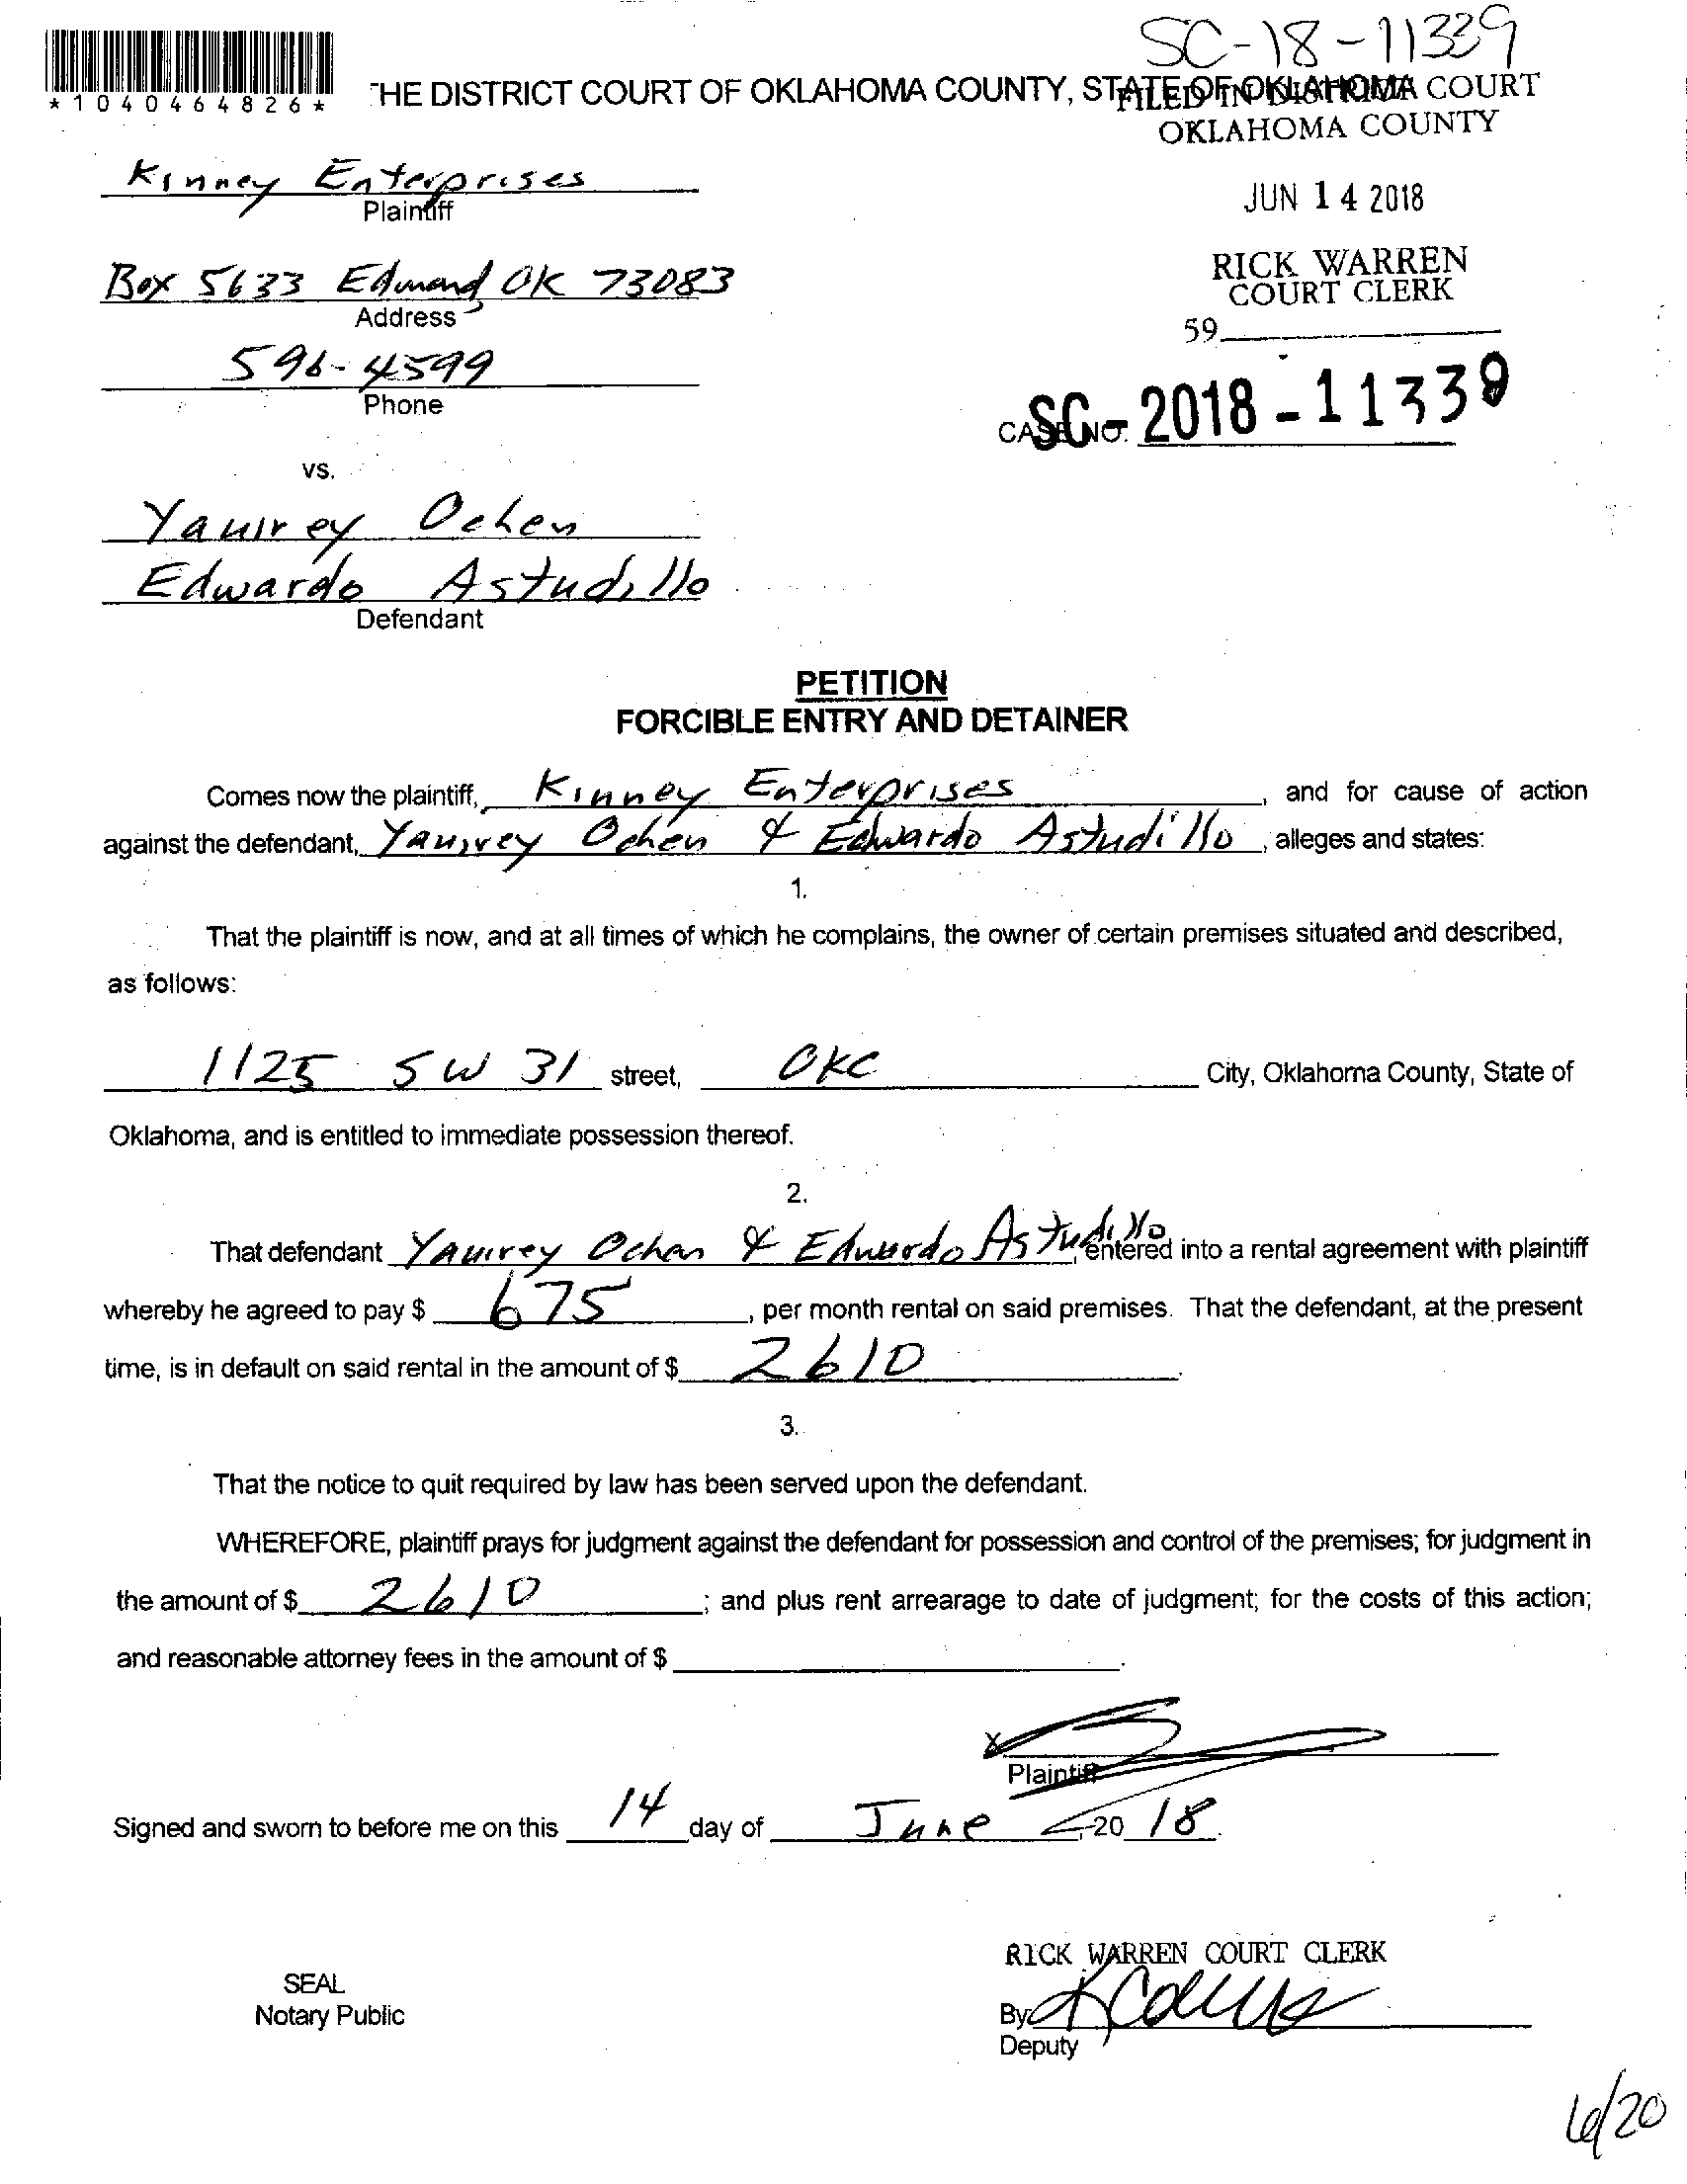 SC-18-11339
*1040464826*
THE DISTRICT COURT OF OKLAHOMA COUNTY, STATE OF OKLAHOMA
FILED IN DISTRICT COURT
OKLAHOMA COUNTY
Kinney Enterprises
Plaintiff
JUN 14 2018
RICK WARREN
COURT CLERK
Box 5633 Edmond OK 73083
Address
59
596-4599
Phone
CASE NO. SC-2018-11339
vs.
Yaurey Ochen
Edwardo Astudillo
Defendant
PETITION
FORCIBLE ENTRY AND DETAINER
Comes now the plaintiff, Kinney Enterprises, and for cause of action
against the defendant, Ochen & Edwardo Astudillo, alleges and states:
1.
That the plaintiff is now, and at all times of which he complains, the owner of certain premises situated and described,
as follows:
1125 SW 31 street, OKC City, Oklahoma County, State of
Oklahoma, and is entitled to immediate possession thereof.
2.
That defendant Ochen & Edwardo Astudillo, entered into a rental agreement with plaintiff
whereby he agreed to pay $ 675, per month rental on said premises. That the defendant, at the present
time, is in default on said rental in the amount of $ 2610.
3.
That the notice to quit required by law has been served upon the defendant.
WHEREFORE, plaintiff prays for judgment against the defendant for possession and control of the premises; for judgment in
the amount of $ 2610; and plus rent arrearage to date of judgment; for the costs of this action;
and reasonable attorney fees in the amount of $ .
X
Plaintiff
Signed and sworn to before me on this 14 day of June, 20 18.
RICK WARREN COURT CLERK
SEAL
Notary Public
By
Deputy
6/20